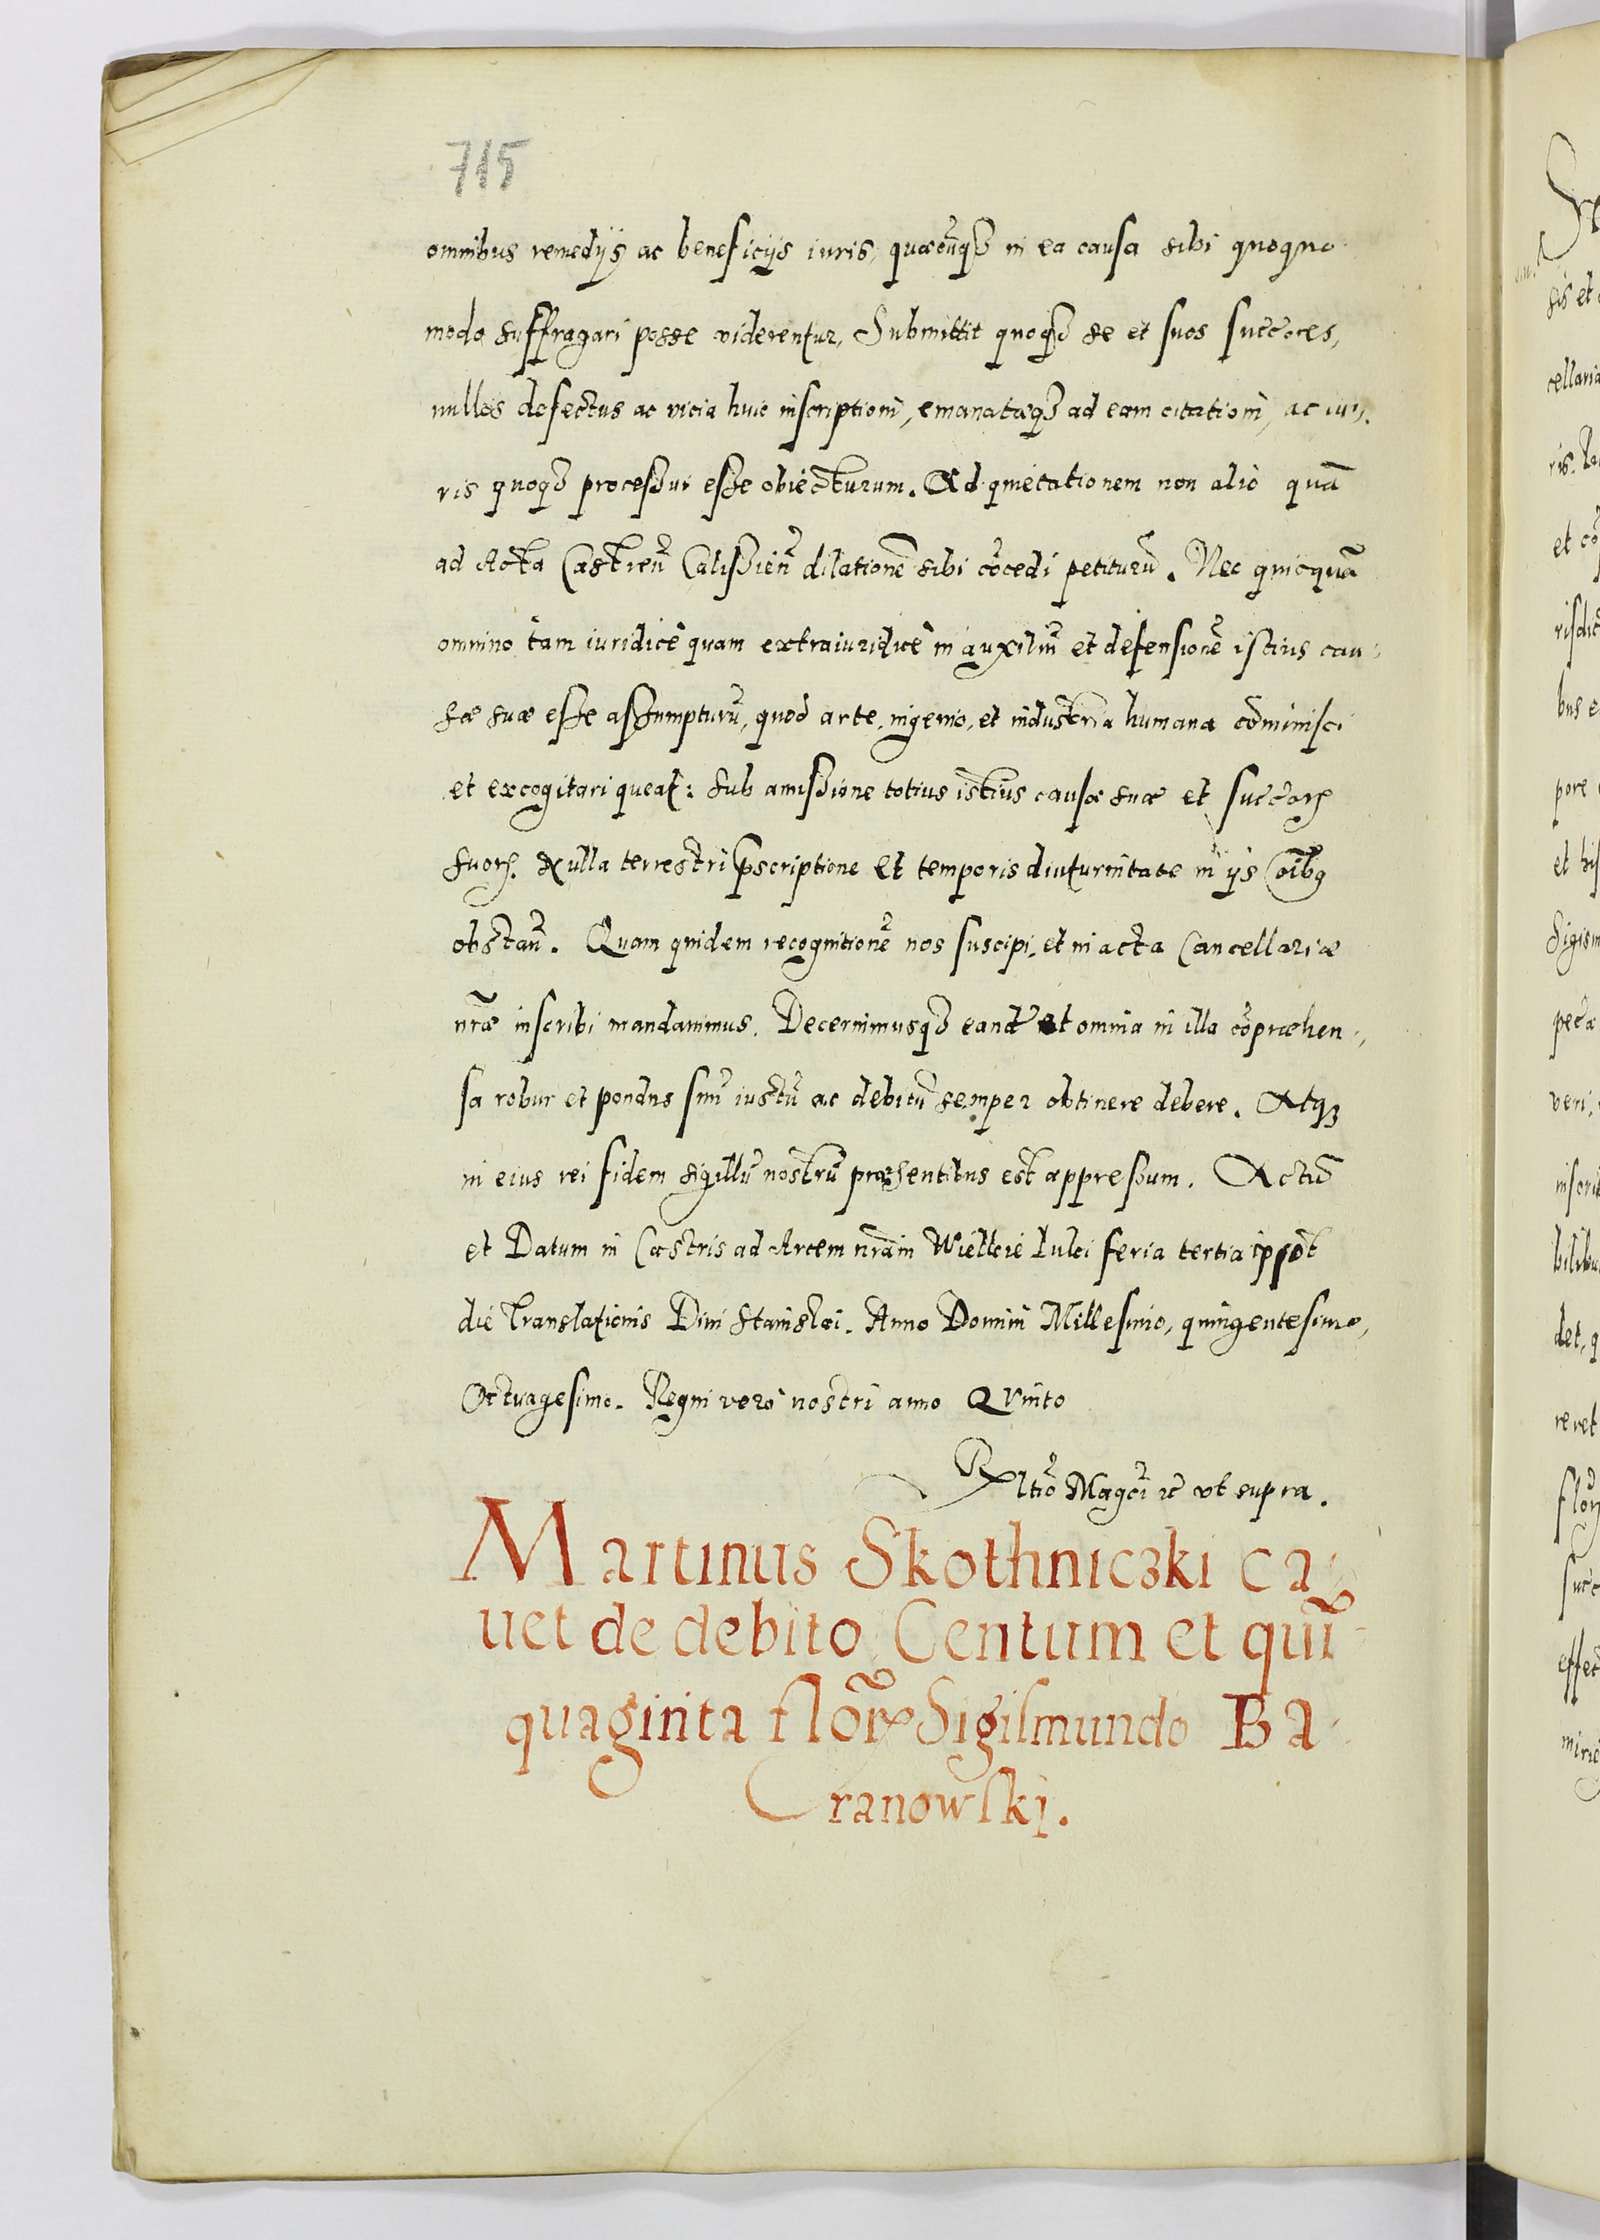 715
omnibus remedijs ac beneficijs iuris, quæcũq3 in ea causa sibi quoquo
modo suffragari posse viderentur, Submittit quoq3 se et suos succores,
nullos defectus ac vicia huic inscriptioni, emanatæq3 ad eam citationi, ac iu,
ris quoq3 processui esse obiecturum. Ad quietationem non aliò quã
ad Acta Castreñ Calissieñ dilationẽ sibi cõcedi petiturũ. Nec quicquã
omnino tam iuridicè quam extraiuridicè in auxiliũ et defensionẽ istius cau,
sæ suæ esse assumpturũ, quod arte, ingenio, et industria humana cõminisci
et excogitari queat: sub amissione totius istius causæ suæ et succorꝝ
suorꝝ. Nulla terrestri pscriptione et temporis diuturnitate in ijs oĩbꝯ
obstañ. Quam quidem recognitionẽ nos suscipi, et in acta Cancellariæ
nr̃æ inscribi mandauimus. Decernimusq3 eandẽ et omnia in illa cõpræhen,
sa robur et pondus suũ iustũ ac debitũ semper obtinere debere. Atq3
in eius rei fidem sigillũ nostrũ præsentibus est appressum. Actũ
et Datum in Castris ad Arcem nr̃am Wielkie Luki feria tertia ipso
die Translationis Diui Stanislai. Anno Domini Millesimo, quingentesimo,
Octuagesimo. Regni verò nostri anno Quinto
Rltio Magci rc vt supra.
Martinus Skothniczki ca-
uet de debito Centum et quĩ-
quaginta florꝝ Sigismundo Ba-
ranowski.